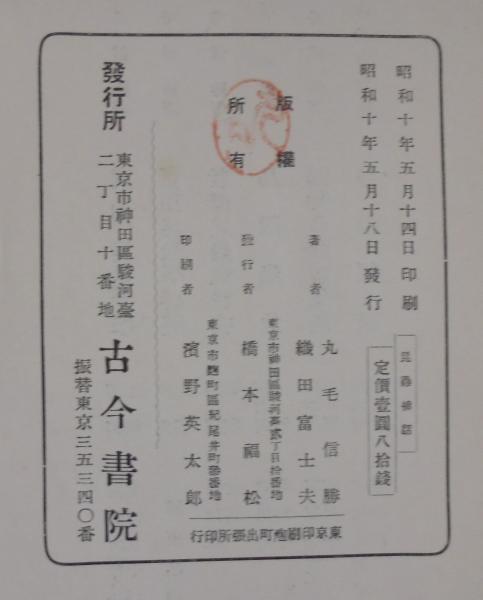 昭和十年五月十四日印刷
昭和十年五月十八日發行
定價壹圓八拾錢
版權
所有
著者
丸毛信勝
織田富士夫
東京市神田區駿河臺貳丁目拾番地
發行者
橋本福松
東京市麴町區紀尾井町參番地
印刷者
濱野英太郎
東京印刷麴町出張所印行
發行所
東京市神田區駿河臺
二丁目十番地
古今書院
振替東京三五三四〇番